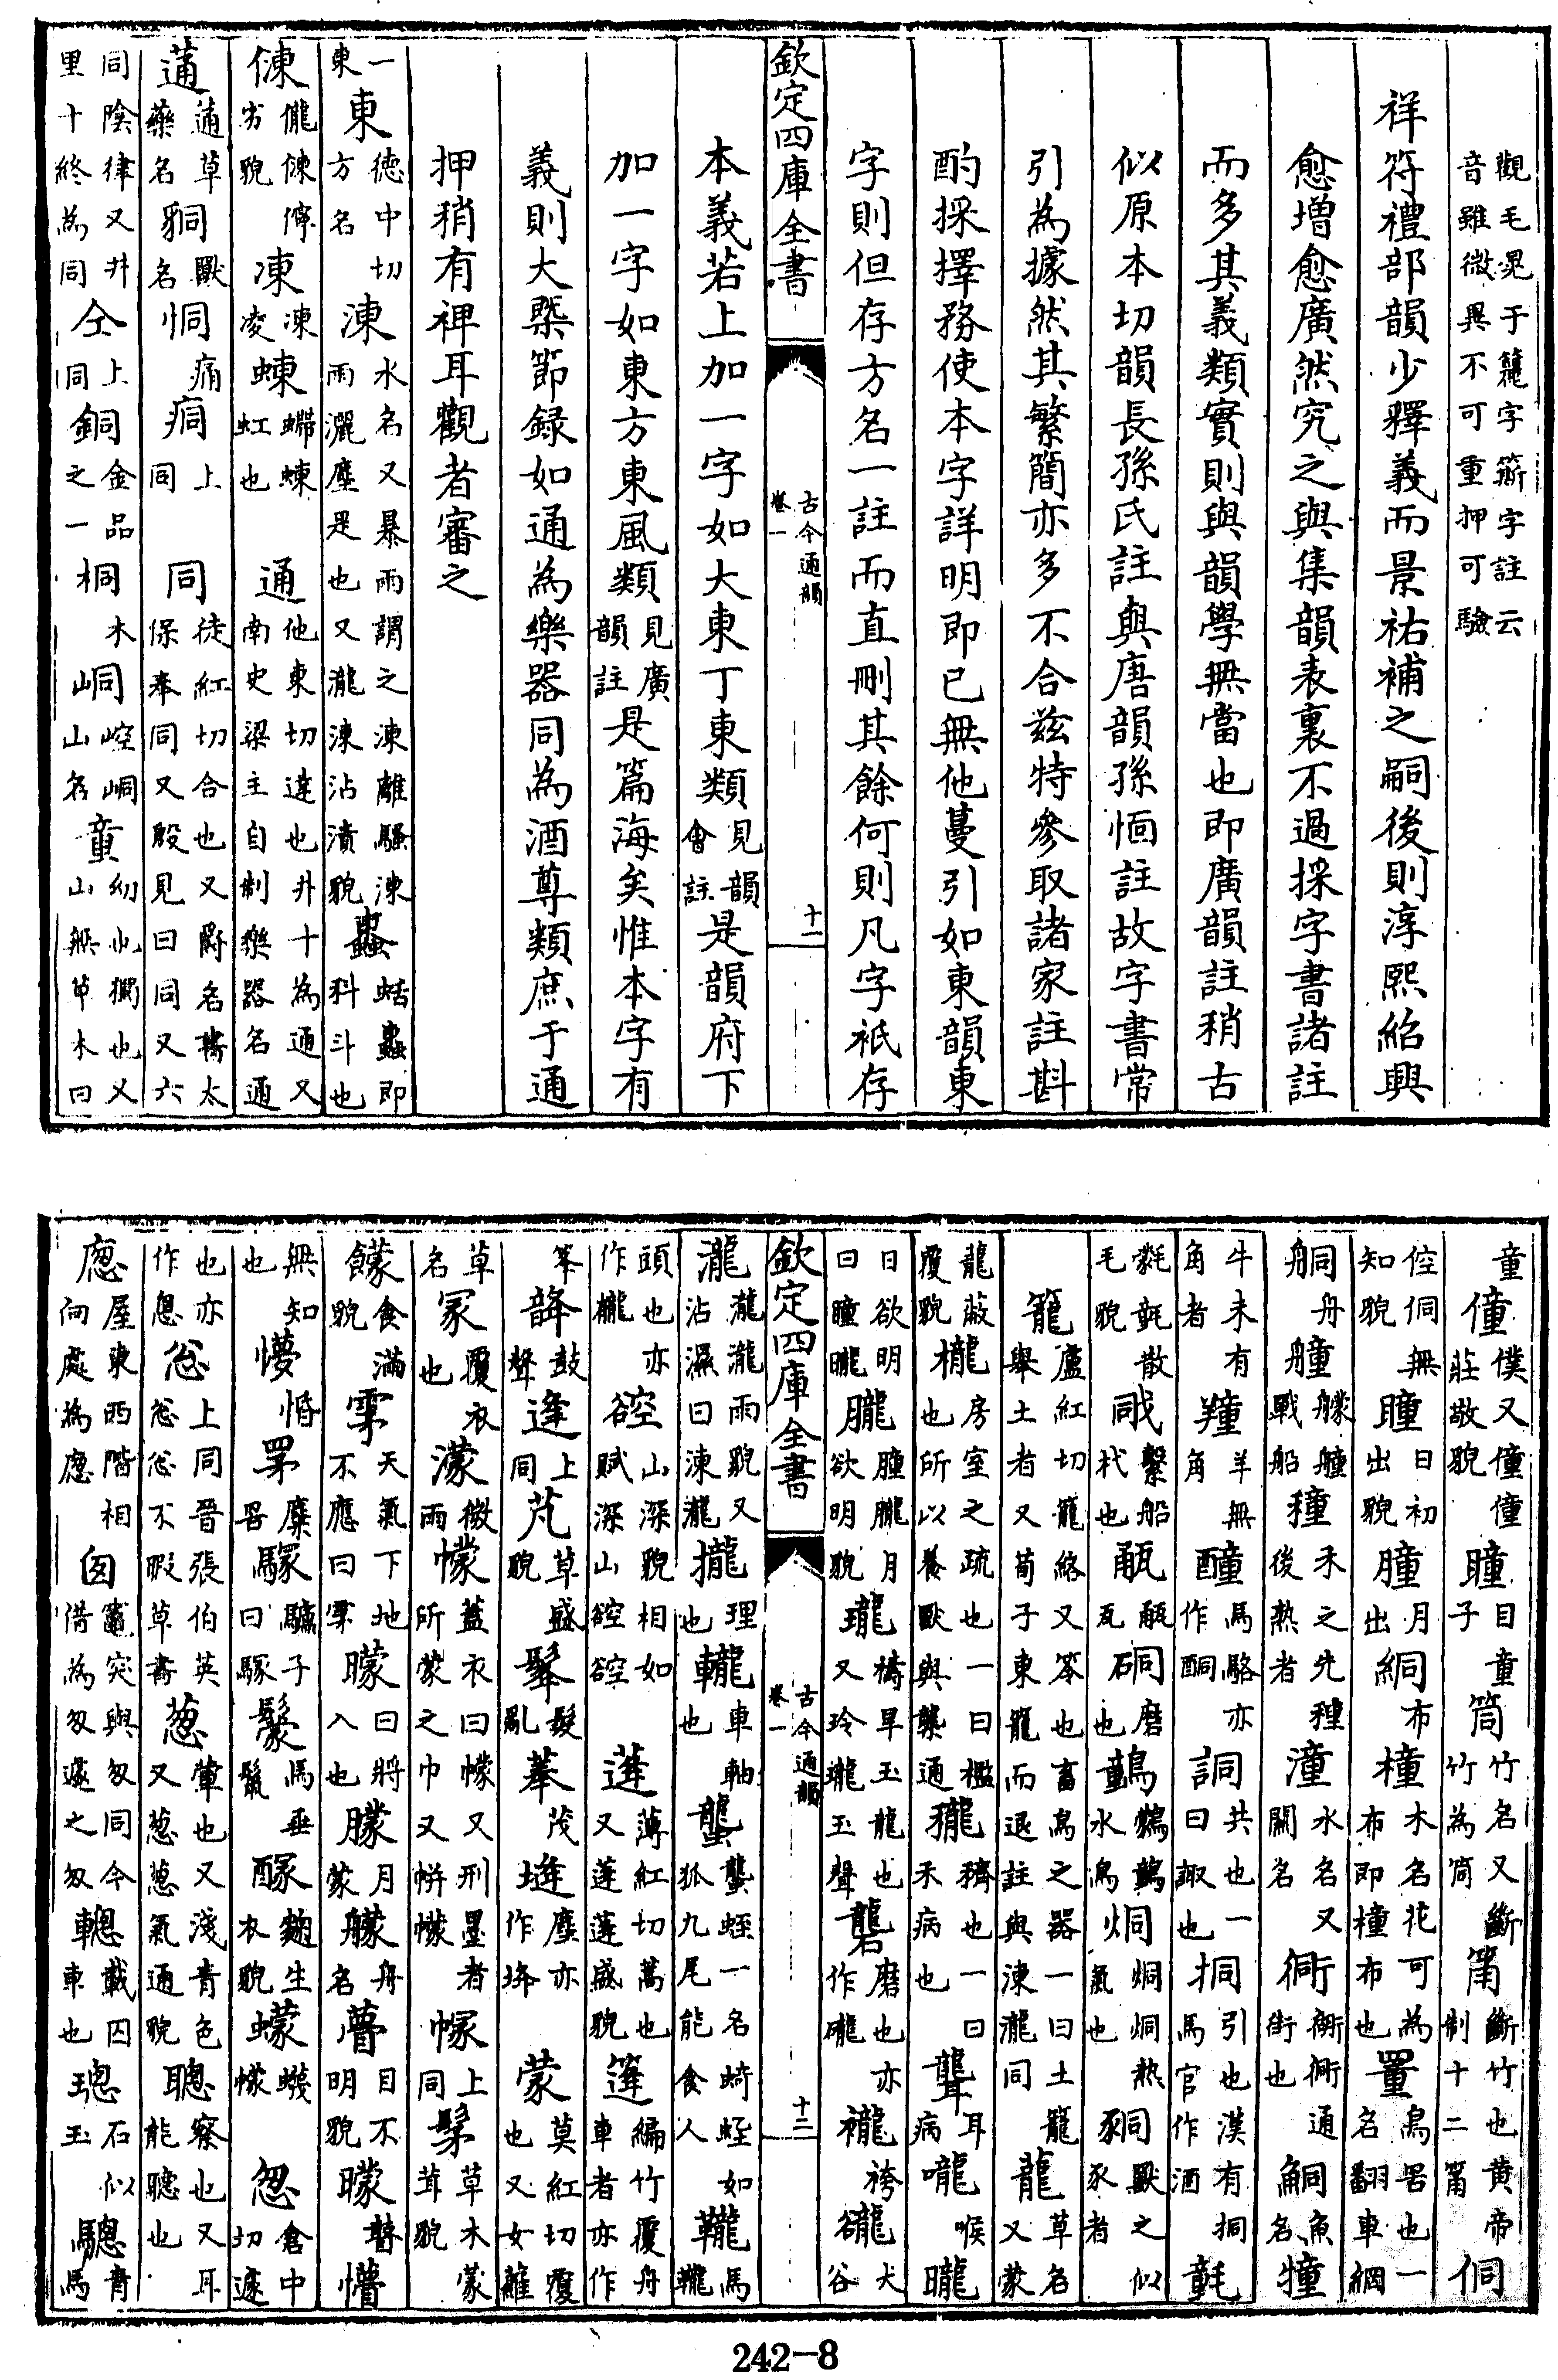 觀毛晃于籠字簖字註云音雖微異不可重押可驗
祥符禮部韻少釋義而景祐補之嗣後則淳熙紹興
愈增愈廣然究之與集韻表裏不過採字書諸註
而多其義類實則與韻學無當也即廣韻註稍古
似原本切韻長孫氏註與唐韻孫愐註故字書常
引為據然其繁簡亦多不合兹特參取諸家註斟
酌採擇務使本字詳明即已無他蔓引如東韻東
字則但存方名一註而直刪其餘何則凡字祇存
欽定四庫全書 古今通韻卷一 十一
本義若上加一字如大東丁東類見韻會註是韻府下
加一字如東方東風類見廣韻註是篇海矣惟本字有
義則大槩節録如通為樂器同為酒尊類庶于通
押稍有禆耳觀者審之
一東 東德中切方名 涷水名又暴雨謂之涷離騷涷雨灑塵是也又瀧涷沾漬貌 蛞即科斗也
倲儱倲儜劣貌 凍凍凌 蝀螮蝀虹也 通他東切達也井十為通又南史梁主自制樂器名通
蓪蓪草藥名 狪獸名 恫痛 痌上同 同徒紅切合也又爵名書太保奉同又殷見曰同又六
同陰律又井里十終為同 仝上同 銅金品之一 桐木 峒崆峒山名 童幼也獨也又山無草木曰
童 僮僕又僮僮莊敬貌 瞳目童子 筒竹名又斷竹為筒 筩斷竹也黄帝制十二筩 侗
倥侗無知貌 曈日初出貌 朣月出 絧布 橦木名花可為布即橦布也 罿鳥罟也一名翻車網
舸舟 艟艨艟戰船 穜禾之先種後熟者 潼水名又關名 衕衚衕通街也 鮦魚名 犝
牛未有角者 羵羊無角 酮馬酪亦作酮 詷共也一曰諏也 挏引也漢有挏馬官作酒 氃
氋氃散毛貌 㦲繫船杙也 㼧㼧瓦 硐磨也 鷋水鳥 烔烔烔熱氣也 狪獸之似豕者
籠盧紅切籠絡又笭也畜鳥之器一曰土籠舉土者又荀子東籠而退註與涷瀧同 蘢草名又蒙
龍蔽覆貌 櫳房室之疏也一曰檻也所以養獸與襲通 穲穧也一曰禾病也 聾耳病 嚨喉 曨
日欲明曰曈曨 朧朣朧月欲明貌 瓏禱旱玉龍也又玲瓏玉聲 礱磨也亦作礲 襱袴 豅大谷
欽定四庫全書 古今通韻卷一 十二
瀧瀧瀧雨貌又沾濕曰涷瀧 攏理也 轆車軸也 蠪蠪蛭一名蜻蛭如狐九尾能食人 鞻馬韈
頭也亦作櫳 谾山深貌相如賦深山谾谾 蓬薄紅切蒿也又蓬蓬盛貌 篷編竹覆舟車者亦作
峯 韸鼓聲 逄上同 芃草盛貌 髼髮亂 莑茂 塳塵亦作埄 蒙莫紅切覆也又女蘿
草名 冡覆也 濛微雨 幪蓋衣曰幪又刑墨者所蒙之巾又帡幪 幏上同 髳草木蒙茸貌
饛食滿貌 雺天氣下地不應曰雺 曚日將入也 朦月蒙 艨舟名 瞢目不明貌 矇瞽 懵
無知也 懜惛 罞麋罟 騣驢子曰騣 鬉馬垂鬣 醿麴生衣貌 蠓蠓 怱倉中切遽
也亦作悤 忩上同晉張伯英忩忩不暇草書 葱葷也又淺青色又葱葱氣通貌 聰察也又耳能聽也
廖屋東西階相向處為廖 囱竈突與匆同今借為匆遽之匆 轗載囚車也 璁石似玉 驄青馬
242-8